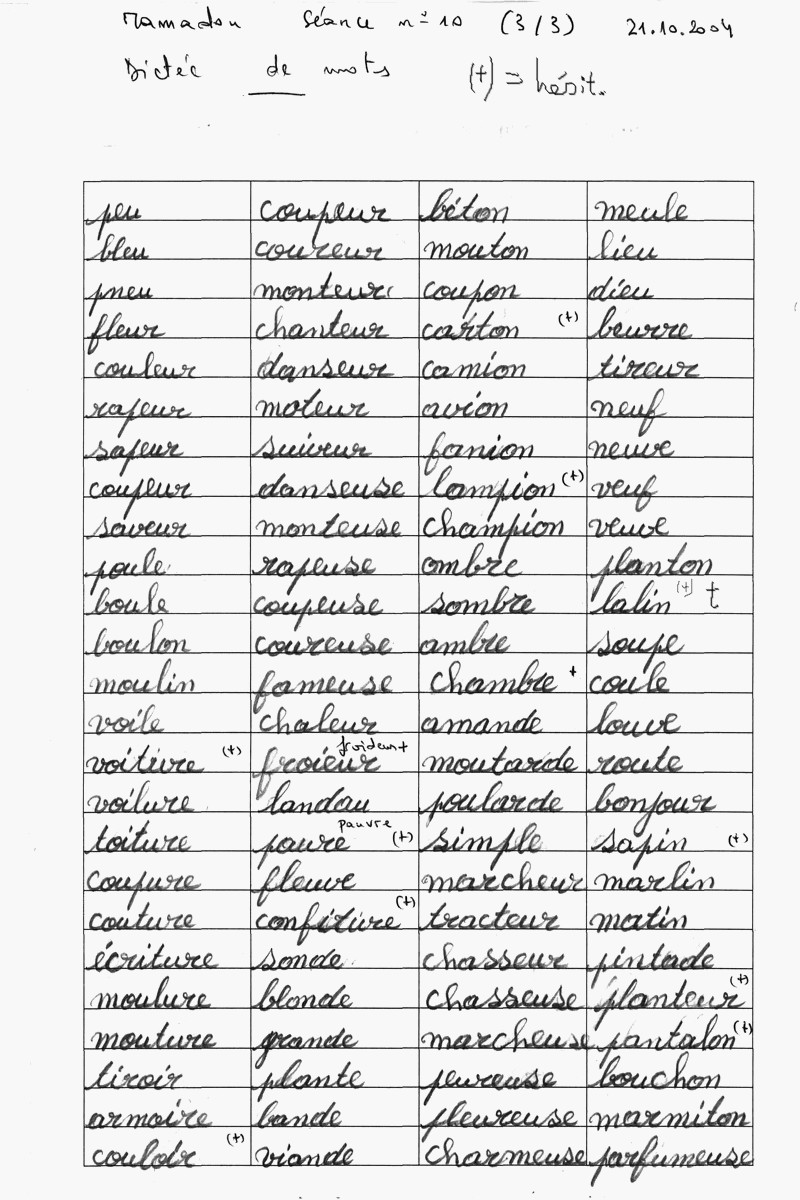 Mamadou Séance n° 10 (3/3) 21.10.2004
Dictée de mots (+) = hésit.
peu coupeur béton meule
bleu coureur mouton lieu
pneu monteur coupon dieu
fleur chanteur carton (+) beurre
couleur danseur camion tireur
rapeur moteur avion neuf
sapeur suiveur fanion neuve
coupeur danseuse lampion (+) veuf
saveur monteuse champion veuve
poule rapeuse ombre planton
boule coupeuse sombre lalin (+) t
boulon coureuse ambre soupe
moulin fameuse chambre + coule
voile chaleur amande louve
voiture (+) froieur froideur + moutarde route
voilure landau poularde bonjour
toiture paure pauvre (+) simple sapin (+)
coupure fleuve marcheur marlin
couture confiture (+) tracteur matin
écriture sonde chasseur pintade
moulure blonde chasseuse planteur (+)
mouture grande marcheuse pantalon (+)
tiroir plante peureuse bouchon
armoire bande pleureuse marmiton
couloir (+) viande charmeuse parfumeuse